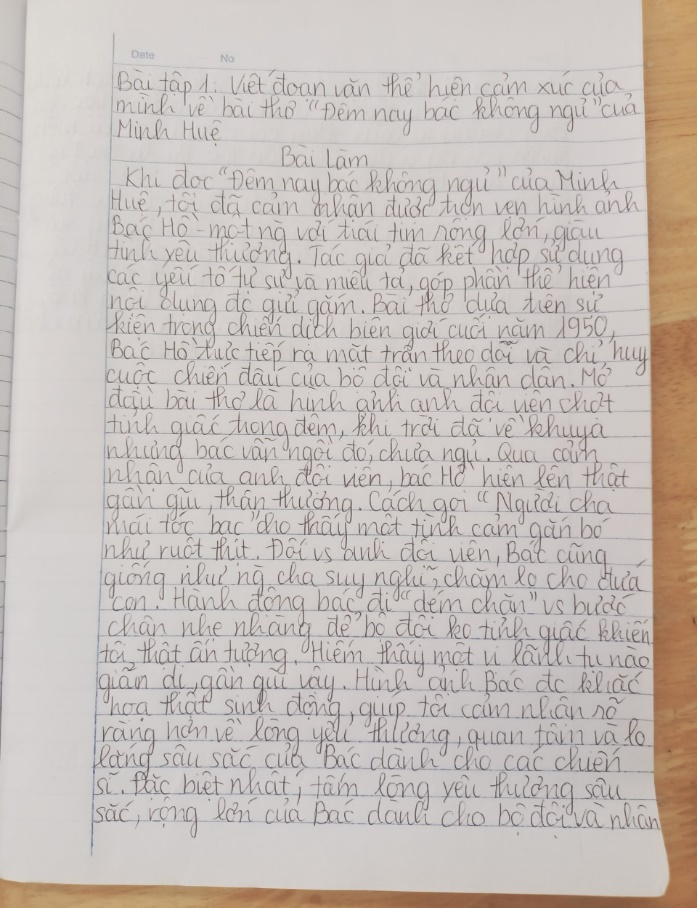 Date No
Bài tập 1: Viết đoạn văn thể hiện cảm xúc của
mình về bài thơ "Đêm nay bác không ngủ" của
Minh Huệ
Bài Làm
Khi đọc "Đêm nay bác không ngủ" của Minh
Huệ, tôi đã cảm nhận được trọn vẹn hình ảnh
Bác Hồ - một ng với trái tim rộng lớn, giàu
tình yêu thương. Tác giả đã kết hợp sử dụng
các yếu tố tự sự và miêu tả, góp phần thể hiện
nội dung đc gửi gắm. Bài thơ dựa trên sự
kiện trong chiến dịch biên giới cuối năm 1950,
Bác Hồ trực tiếp ra mặt trận theo dõi và chỉ huy
cuộc chiến đấu của bộ đội và nhân dân. Mở
đầu bài thơ là hình ảnh anh đội viên chợt
tỉnh giấc trong đêm, khi trời đã về khuya
nhưng bác vẫn ngồi đó, chưa ngủ. Qua cảm
nhận của anh đội viên, bác Hồ hiện lên thật
gần gũi, thân thương. Cách gọi "Người cha
mái tóc bạc" cho thấy một tình cảm gắn bó
như ruột thịt. Đối vs anh đội viên, Bác cũng
giống như ng cha suy nghĩ, chăm lo cho đứa
con. Hành động bác đi "dém chăn" vs bước
chân nhẹ nhàng để bộ đội ko tỉnh giấc khiến
tôi thật ấn tượng. Hiếm thấy một vị lãnh tụ nào
giản dị, gần gũi vậy. Hình ảnh Bác đc khắc
hoạ thật sinh động, giúp tôi cảm nhận rõ
ràng hơn về lòng yêu thương, quan tâm và lo
lắng sâu sắc của Bác dành cho các chiến
sĩ. Đặc biệt nhất, tấm lòng yêu thương sâu
sắc, rộng lớn của Bác dành cho bộ đội và nhân